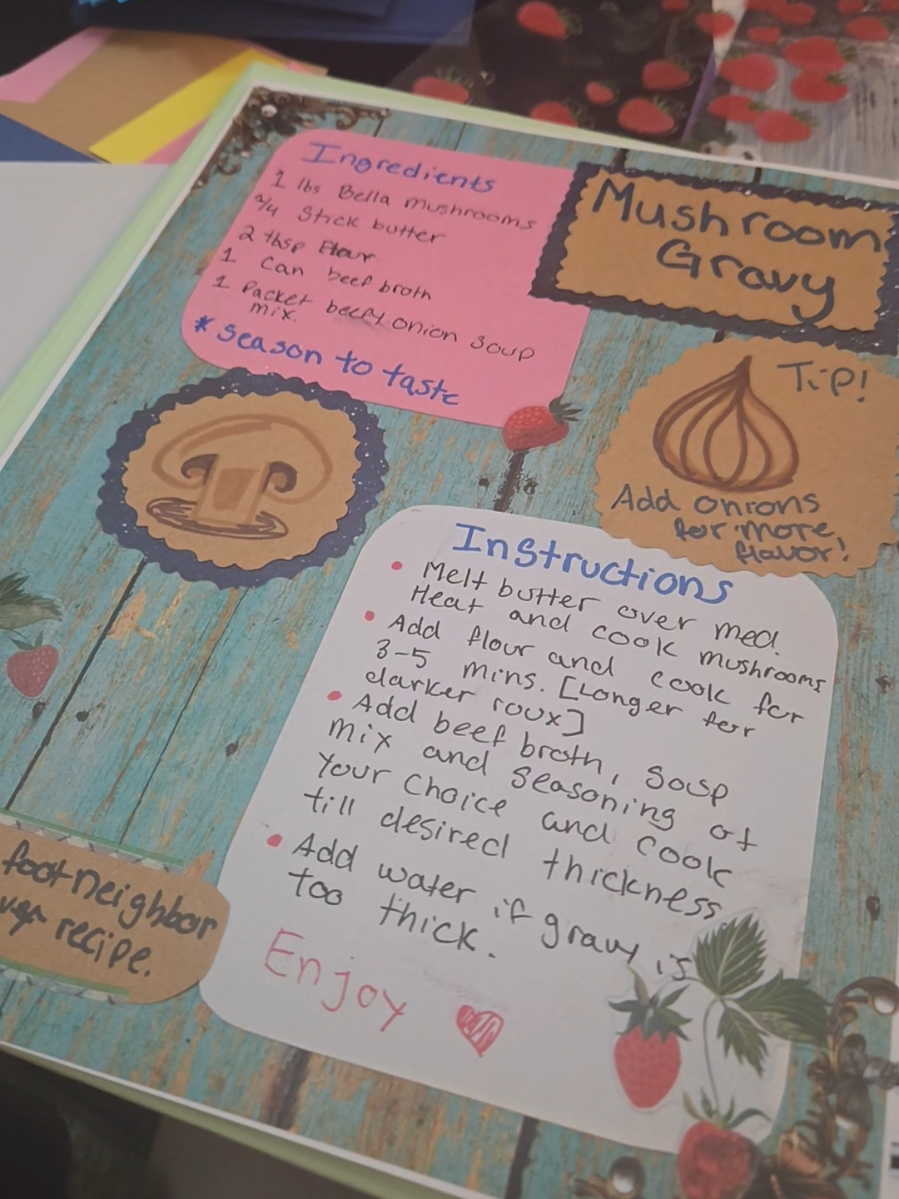 Mushroom
Gravy
Ingredients
1 lbs Bella mushrooms
3/4 Stick butter
2 tbsp Flour
1 Can beef broth
1 Packet beefy onion soup
mix.
* Season to taste
Tip!
Add onions
for more
flavor!
Instructions
• Melt butter over med.
Heat and cook mushrooms
• Add flour and cook for
3-5 mins. [Longer for
darker roux]
• Add beef broth, soup
mix and seasoning of
your choice and cook
till desired thickness
• Add water if gravy is
too thick.
Enjoy
foot neighbor
recipe.